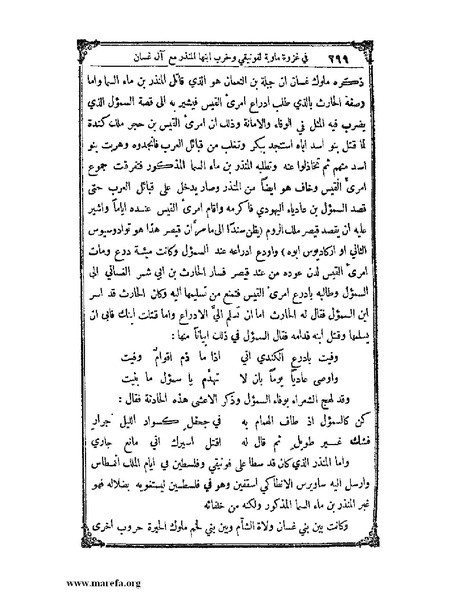 ٢٩٩ في غزوة ماوية لفونيقي وحرب ابنها المنذر مع آل غسان
ذكره ملوك غسان ان جبلة بن النعمان هو الذي قاتل المنذر بن ماء السما واما
وصفة الحارث بالذي طلب ادراع امرئ القيس فيشير به الى قصة السمؤل الذي
يضرب فيه المثل في الوفاء والامانة وذلك ان امرئ القيس بن حجر ملك كندة
لما قتل بنو اسد اباه استنجد ببكر وتغلب من قبائل العرب فانجدوه وهربت بنو
اسد منهم ثم تخاذلوا عنه وتطلبه المنذر بن ماء السما المذكور فتفرقت جموع
امرئ القيس وخاف هو ايضاً من المنذر وصار يدخل على قبائل العرب حتى
قصد السمؤل بن عادياء اليهودي فاكرمه واقام امرئ القيس عنده اياماً واشير
عليه ان يقصد قيصر ملك الروم (يظن سندًا الى ما مر ان قيصر هذا هو تاودوسيوس
الثاني او اركاديوس ابوه) واودع ادراعه عند السمؤل وكانت مئة درع ومات
امرئ القيس لدن عوده من عند قيصر فسار الحارث بن ابي شمر الغساني الى
السمؤل وطالبه بادرع امرئ القيس فتمنع من تسليمها اليه وكان الحارث قد اسر
ابن السمؤل فقال له الحارث اما ان تسلم اليَّ الادراع واما قتلت ابنك فابى ان
يسلمها وقتل ابنه قدامه فقال السمؤل في ذلك ابياتاً منها :
وفيت بادرع الكندي اني اذا ما ذم اقوام وفيت
واوصى عاديا يوماً بان لا تهدّم يا سمؤل ما بنيت
وقد لهج الشعراء بوفاء السمؤل وذكر الاعشى هذه الحادثة فقال :
كن كالسمؤل اذ طاف الهمام به في جحفل كسواد الليل جرار
فشك غير طويل ثم قال له اقتل اسيرك اني مانع جاري
واما المنذر الذي كان قد سطا على فونيقي وفلسطين في ايام الملك انسطاس
وارسل اليه ساويرس الانطاكي اسقفين وهو في فلسطين ليستغويه بضلاله فهو
غير المنذر بن ماء السما المذكور ولكنه من خلفائه
وكانت بين بني غسان ولاة الشآم وبين بني لخم ملوك الحيرة حروب اخرى
www.marefa.org